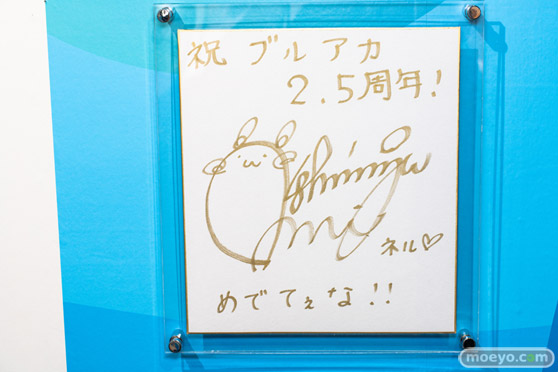 祝 ブルアカ
2.5周年!
ネル♡
めでてぇな!!
moeyo.com